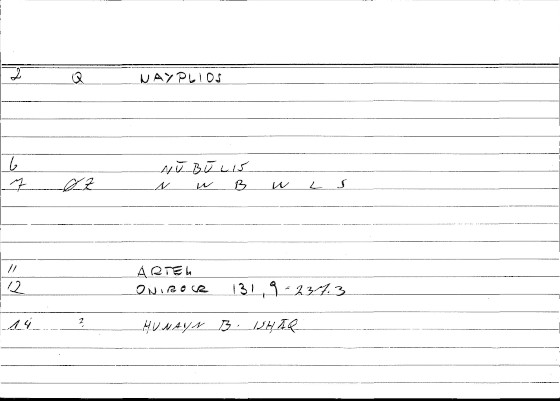 2 Q NAYPLIOS
6 NŪBŪLIS
7 ØZ N W B W L S
11 ARTEM
12 ONIROCR 131,9-237.3
14 ? HUNAYN B. ISHĀQ